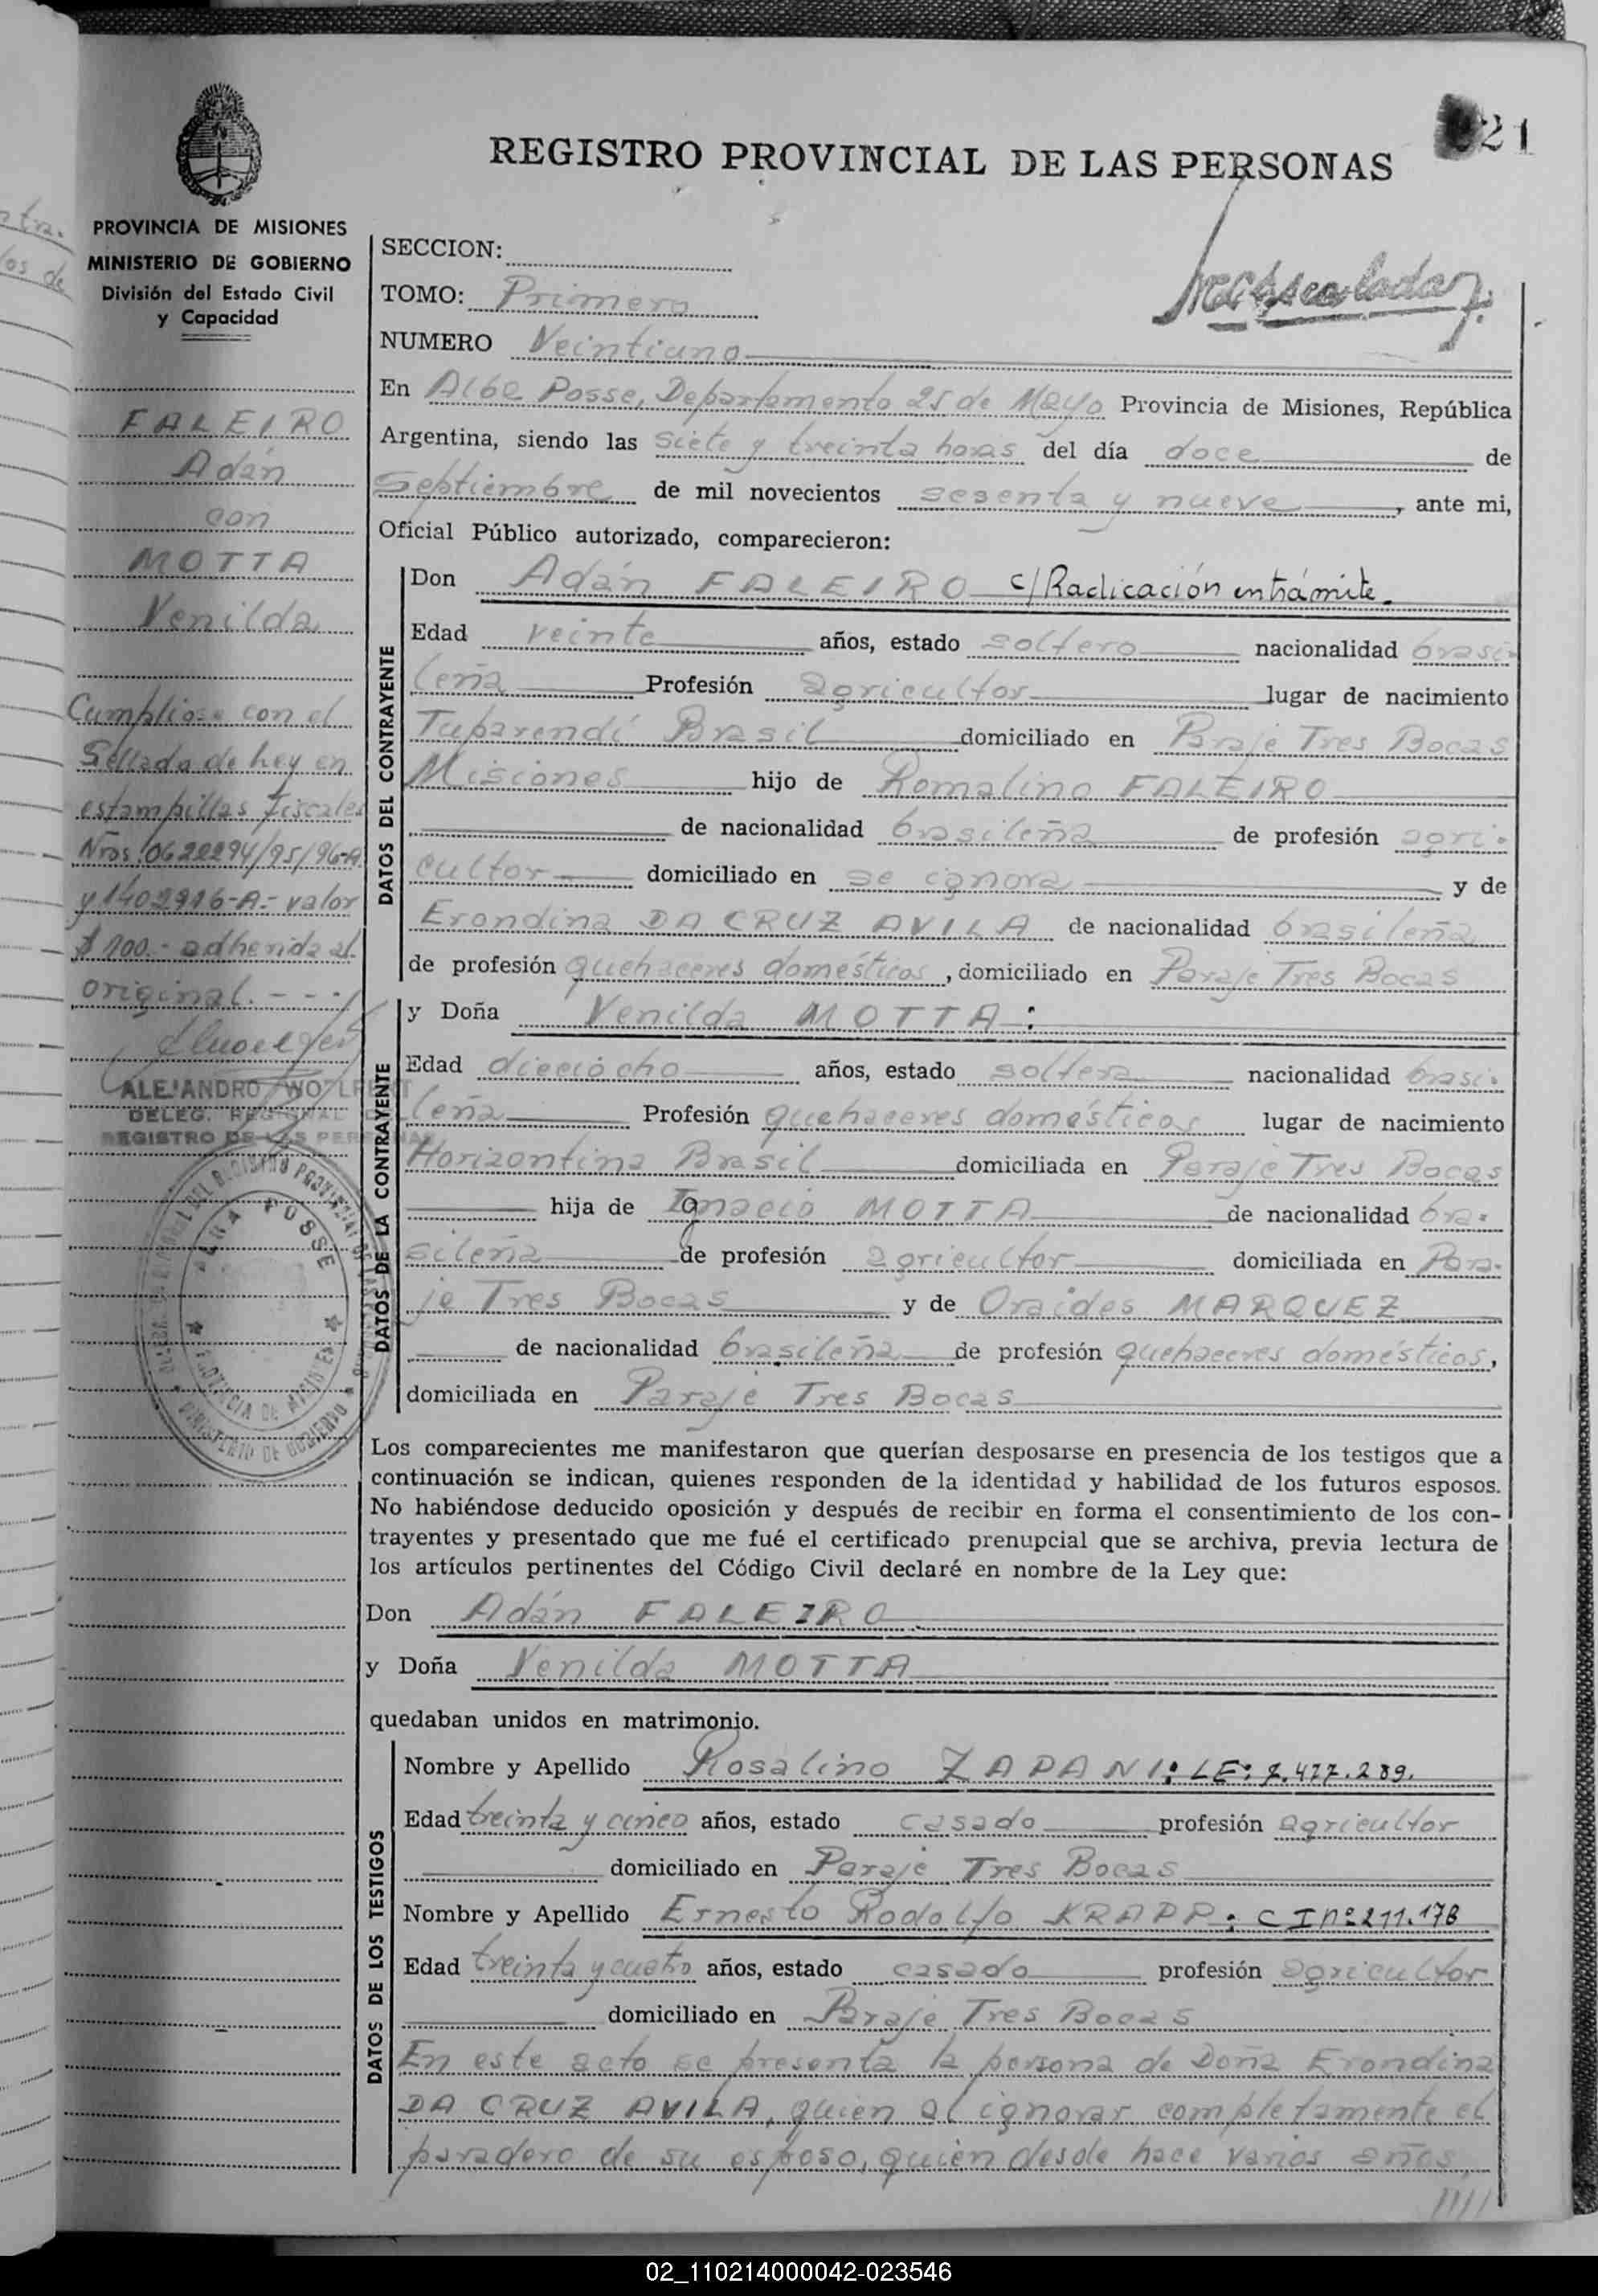 21
REGISTRO PROVINCIAL DE LAS PERSONAS
PROVINCIA DE MISIONES
MINISTERIO DE GOBIERNO
División del Estado Civil
y Capacidad
FALEIRO
Adán
con
MOTTA
Venilda
Cumpliose con el
Sellado de ley en
estampillas fiscales
Nros. 0622294/95/96-A
y 1402916-A.- valor
$ 100.- adherida al
original. - - -
ALEJANDRO
DELEG. REGIONAL
REGISTRO DE LAS PERSONAS
ALBA POSSE
PROVINCIA DE MISIONES
MINISTERIO DE GOBIERNO
SECCION:
TOMO: Primero
NUMERO Veintiuno
En Alba Posse, Departamento 25 de Mayo Provincia de Misiones, República
Argentina, siendo las siete y treinta horas del día doce de
Septiembre de mil novecientos sesenta y nueve, ante mi,
Oficial Público autorizado, comparecieron:
DATOS DEL CONTRAYENTE
Don Adán FALEIRO c/Radicación en trámite.
Edad veinte años, estado soltero nacionalidad brasi-
leña Profesión agricultor lugar de nacimiento
Tuparendí Brasil domiciliado en Paraje Tres Bocas
Misiones hijo de Romalino FALEIRO
de nacionalidad brasileña de profesión agri-
cultor domiciliado en se ignora y de
Erondina DA CRUZ AVILA de nacionalidad brasileña
de profesión quehaceres domésticos, domiciliado en Paraje Tres Bocas
DATOS DE LA CONTRAYENTE
y Doña Venilda MOTTA:
Edad dieciocho años, estado soltera nacionalidad brasi-
leña Profesión quehaceres domésticos lugar de nacimiento
Horizontina Brasil domiciliada en Paraje Tres Bocas
hija de Ignacio MOTTA de nacionalidad bra-
sileña de profesión agricultor domiciliada en Para-
je Tres Bocas y de Oraides MARQUEZ
de nacionalidad brasileña de profesión quehaceres domésticos,
domiciliada en Paraje Tres Bocas
Los comparecientes me manifestaron que querían desposarse en presencia de los testigos que a
continuación se indican, quienes responden de la identidad y habilidad de los futuros esposos.
No habiéndose deducido oposición y después de recibir en forma el consentimiento de los con-
trayentes y presentado que me fué el certificado prenupcial que se archiva, previa lectura de
los artículos pertinentes del Código Civil declaré en nombre de la Ley que:
Don Adán FALEIRO
y Doña Venilda MOTTA
quedaban unidos en matrimonio.
DATOS DE LOS TESTIGOS
Nombre y Apellido Rosalino ZAPANI: LE: 7.477.289.
Edad treinta y cinco años, estado casado profesión agricultor
domiciliado en Paraje Tres Bocas
Nombre y Apellido Ernesto Rodolfo KRAPP: C I nº 211.178
Edad treinta y cuatro años, estado casado profesión agricultor
domiciliado en Paraje Tres Bocas
En este acto se presenta la persona de Doña Erondina
DA CRUZ AVILA, quien al ignorar completamente el
paradero de su esposo, quien desde hace varios años,
/////
02_110214000042-023546